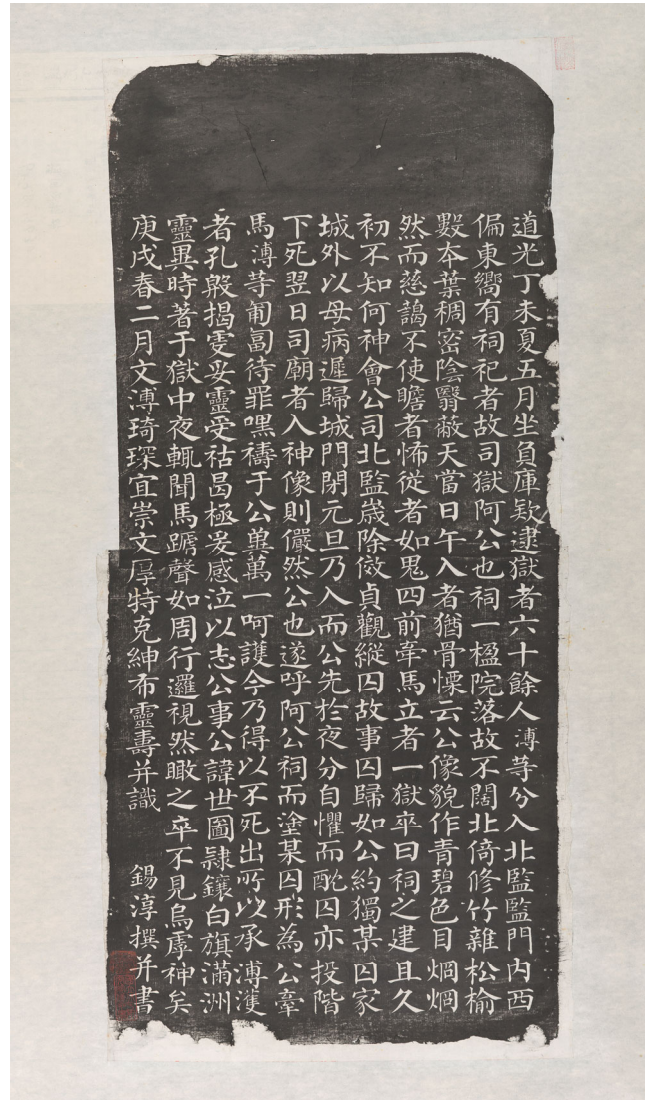 道光丁未夏五月坐負庫欵逮獄者六十餘人溥等分入北監監門内西
偏東嚮有祠祀者故司獄阿公也祠一楹院落故不闊北倚修竹雜松榆
數夲葉稠密陰翳蔽天當日午入者猶骨慄云公像貌作青碧色目烱烱
然而慈藹不使瞻者怖従者如鬼四前牽馬立者一獄卒曰祠之建且久
初不知何神會公司北監嵗除倣貞觀縱囚故事囚歸如公約獨某囚家
城外以母病遲歸城門閉元旦乃入而公先於夜分自懼而酖囚亦投階
下死翌日司廟者入神像則儼然公也遂呼阿公祠而塗某囚形為公牽
馬溥等匍匐待罪嘿禱于公兾萬一呵護今乃得以不死出所以承溥濩
者孔殷揭虔妥靈受祜曷極爰感泣以志公事公諱世圖隷鑲白旗滿洲
靈異時著于獄中夜輒聞馬蹏聲如周行邏視然瞰之卒不見烏虖神矣
庚戌春二月文溥琦琛宜崇文厚特克紳布靈壽并識　錫淳撰并書